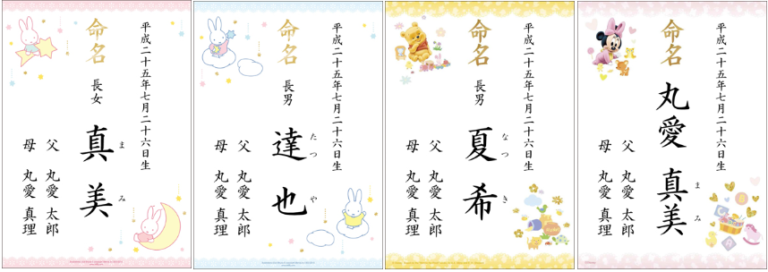 平成二十五年七月二十六日生
命名
長女
真美
まみ
父 丸愛 太郎
母 丸愛 真理
平成二十五年七月二十六日生
命名
長男
達也
たつや
父 丸愛 太郎
母 丸愛 真理
平成二十五年七月二十六日生
命名
長男
夏希
なつき
父 丸愛 太郎
母 丸愛 真理
平成二十五年七月二十六日生
命名
丸愛 真美
まみ
父 丸愛 太郎
母 丸愛 真理